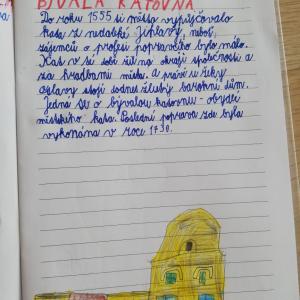 BÝVALÁ KATOVNA
Do roku 1555 si město vypůjčovalo
kata z nedaleké Jihlavy, neboť
zájemců o profesi popravčího bylo málo.
Kat v té době žil na okraji společnosti a
za hradbami města. a právě u řeky
Oslavy stojí dodnes žlutý barokní dům.
Jedná se o bývalou katovnu - obydlí
městského kata. Poslední poprava zde byla
vykonána v roce 1730.